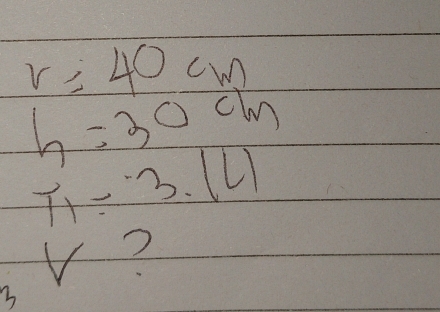 r = 40 cm
h = 30 cm
π = 3.14
V ?
3